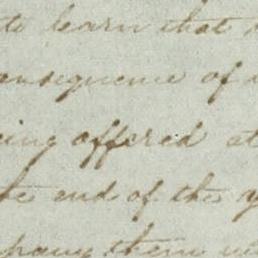 to learn that
consequence of
being offered at
the end of the y
them